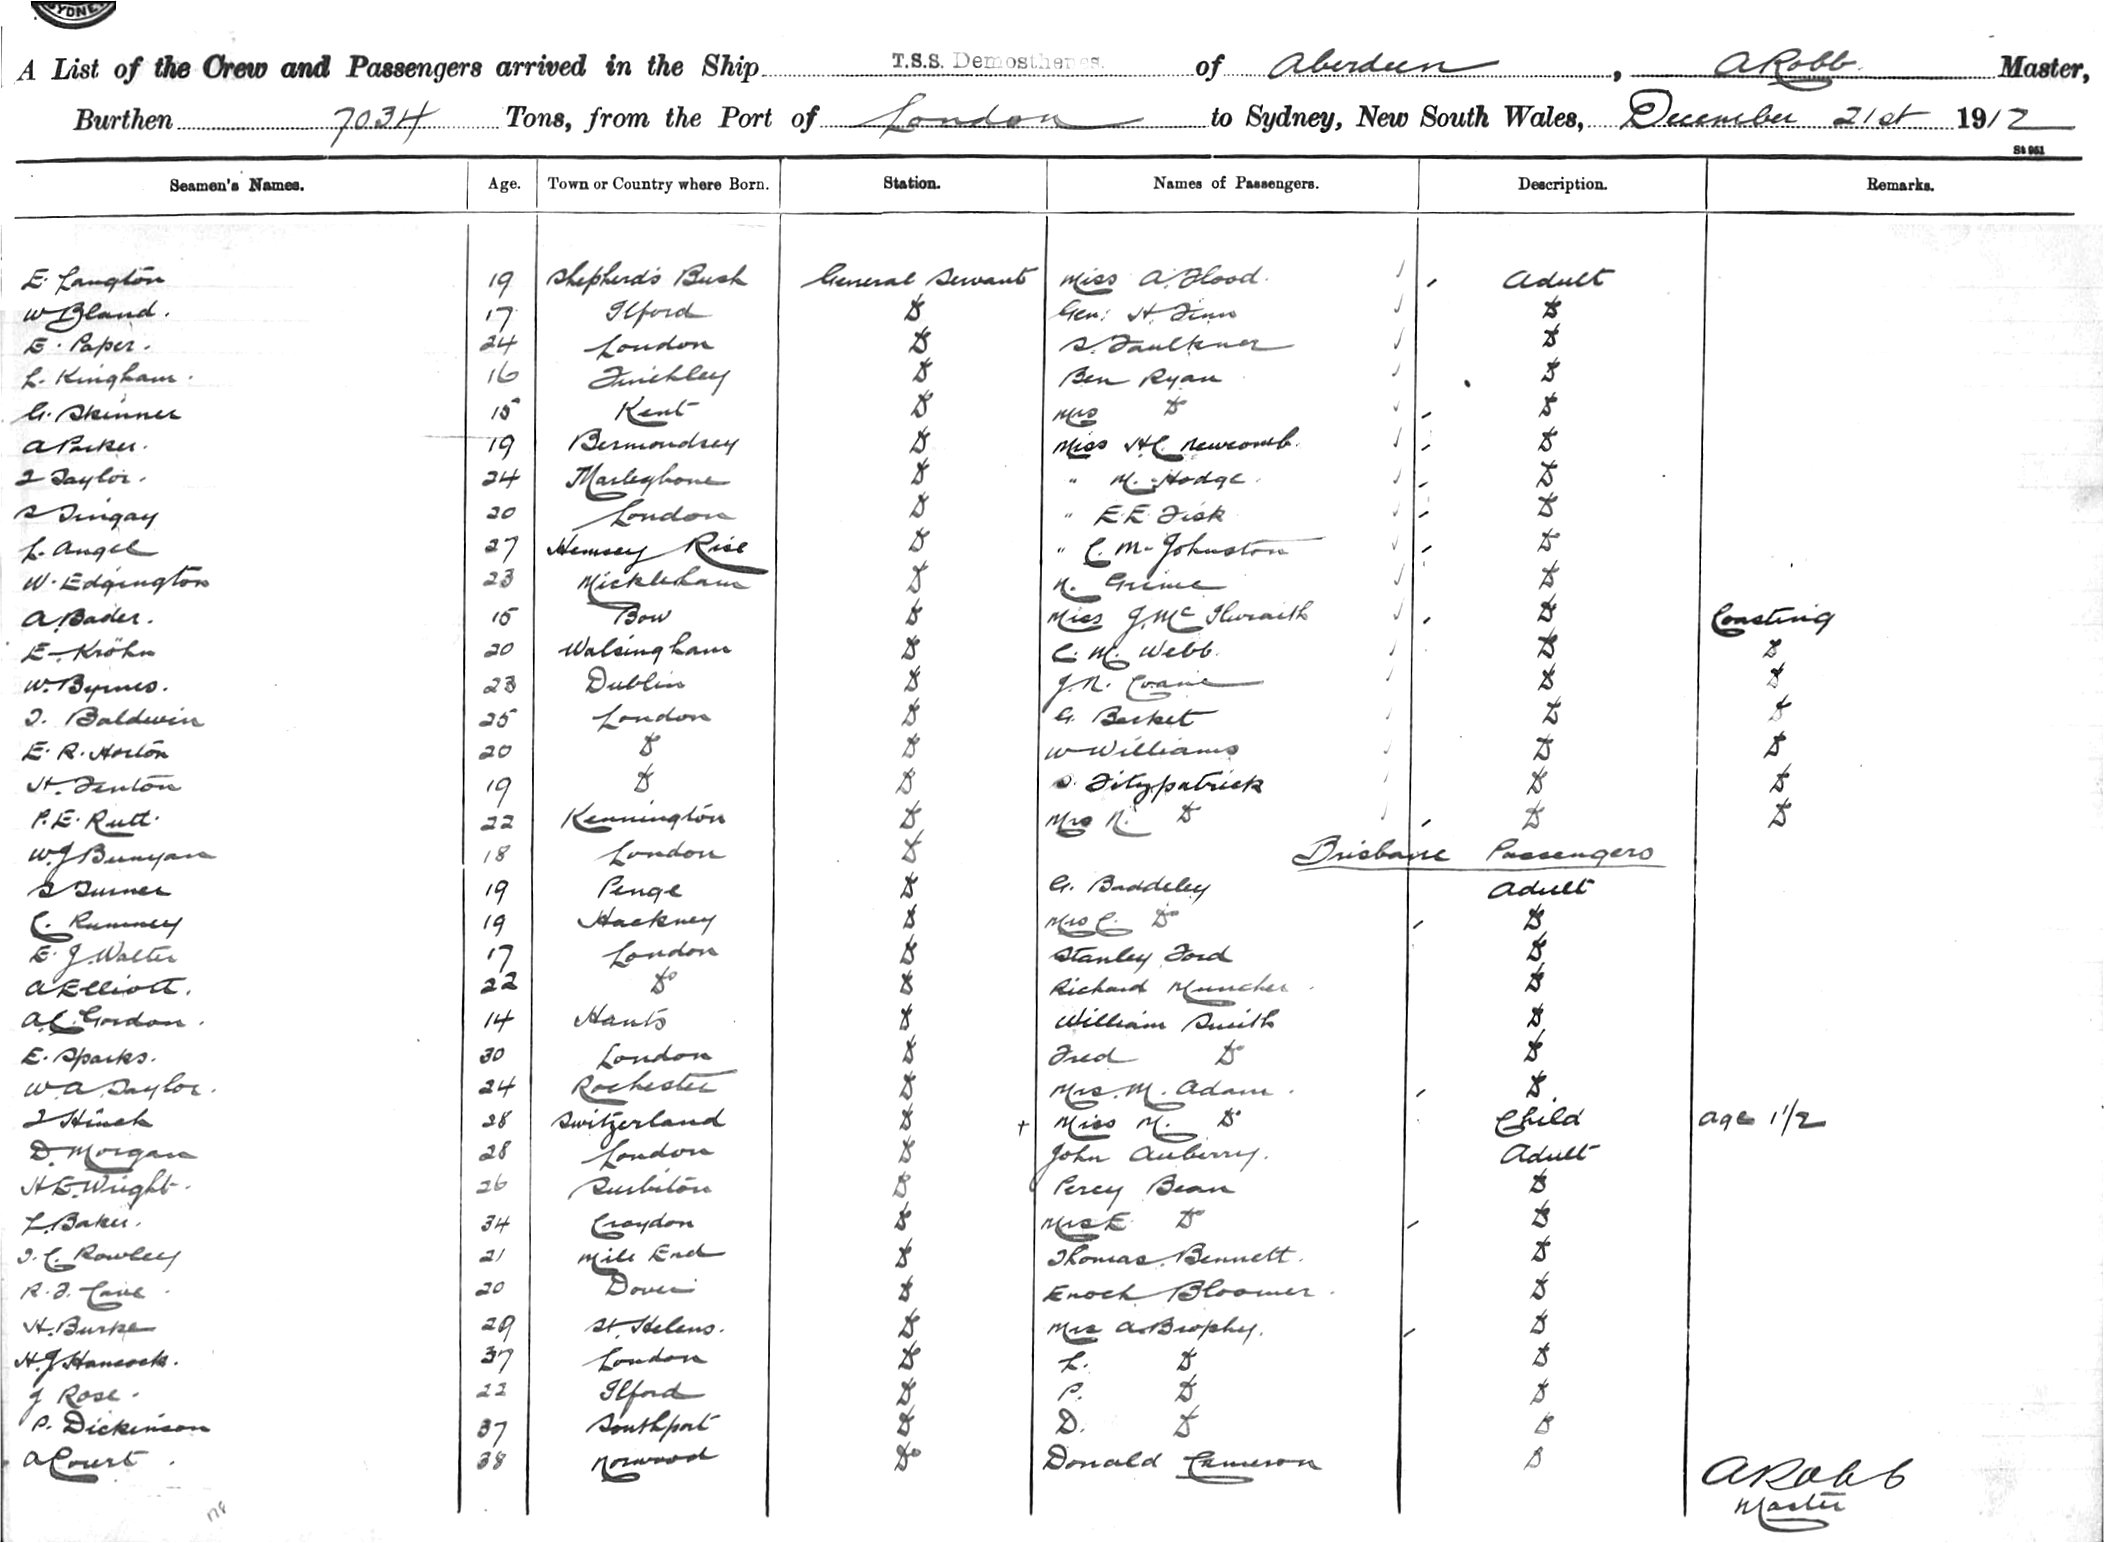 SYDNEY
A List of the Crew and Passengers arrived in the Ship T.S.S. Demosthenes. of Aberdeen, A Robb. Master,
Burthen 7034 Tons, from the Port of London to Sydney, New South Wales, December 21st 1912
St 951
Seamen's Names. Age. Town or Country where Born. Station. Names of Passengers. Description. Remarks.
E. Langton 19 Shepherds Bush General Servant Miss A. Flood. Adult
W Bland. 17 Ilford Do Gen: H. Finn Do
E. Paper. 24 London Do S. Faulkner Do
L. Kingham. 16 Finchley Do Ben Ryan Do
G. Skinner 15 Kent Do Mrs Do Do
A Parker. 19 Bermondsey Do Miss H.C. Newcomb. Do
Taylor. 24 Marleybone Do " M. Hodge. Do
S Tingay 20 London Do " E.E. Fisk Do
L. Angel 27 Hemsey Rise Do " C. M. Johnston Do
W. Edgington 23 Mickleham Do N. Grime Do
A. Bader. 15 Bow Do Miss J. McIlwraith Do Coasting
E. Kröhn 20 Walsingham Do C. M. Webb. Do Do
W. Byrnes. 23 Dublin Do J.N. Do Do
T. Baldwin 25 London Do G. Becket Do Do
E. R. Horton 20 Do Do W Williams Do Do
H. Fenton 19 Do Do Fitzpatrick Do Do
P. E. Rutt. 22 Kennington Do Mrs N. Do Do Do
W. J Bunyan 18 London Do Brisbane Passengers
S Turner 19 Penge Do G. Baddeley Adult
C. Rumney 19 Hackney Do Mrs C. Do Do
E. J. Walter 17 London Do Stanley Ford Do
A Elliott. 22 Do Do Richard Muncher. Do
A.C. Gordon. 14 Hants Do William Smith Do
E. Sparks. 30 London Do Fred Do Do
W. A. Taylor. 24 Rochester Do Mrs. M. Adam. Do
Hinck 28 Switzerland Do + Miss M. Do Child Age 1 1/2
D. Morgan 28 London Do John Auberry. Adult
H. E. Wright. 26 Surbiton Do Percy Bean Do
L. Baker. 34 Croydon Do Mrs E Do Do
T. C. Rowley 21 Mile End Do Thomas. Bennett. Do
R. F. Cave. 20 Dover Do Enoch Bloomer. Do
H. Burke 29 St. Helens. Do Mrs A. Brophy. Do
H. J Hancock. 37 London Do L. Do Do
J Rose. 22 Ilford Do P. Do Do
P. Dickinson 37 Southport Do D. Do Do
A Court. 38 Norwood Do Donald Cameron Do
A Robb
Master